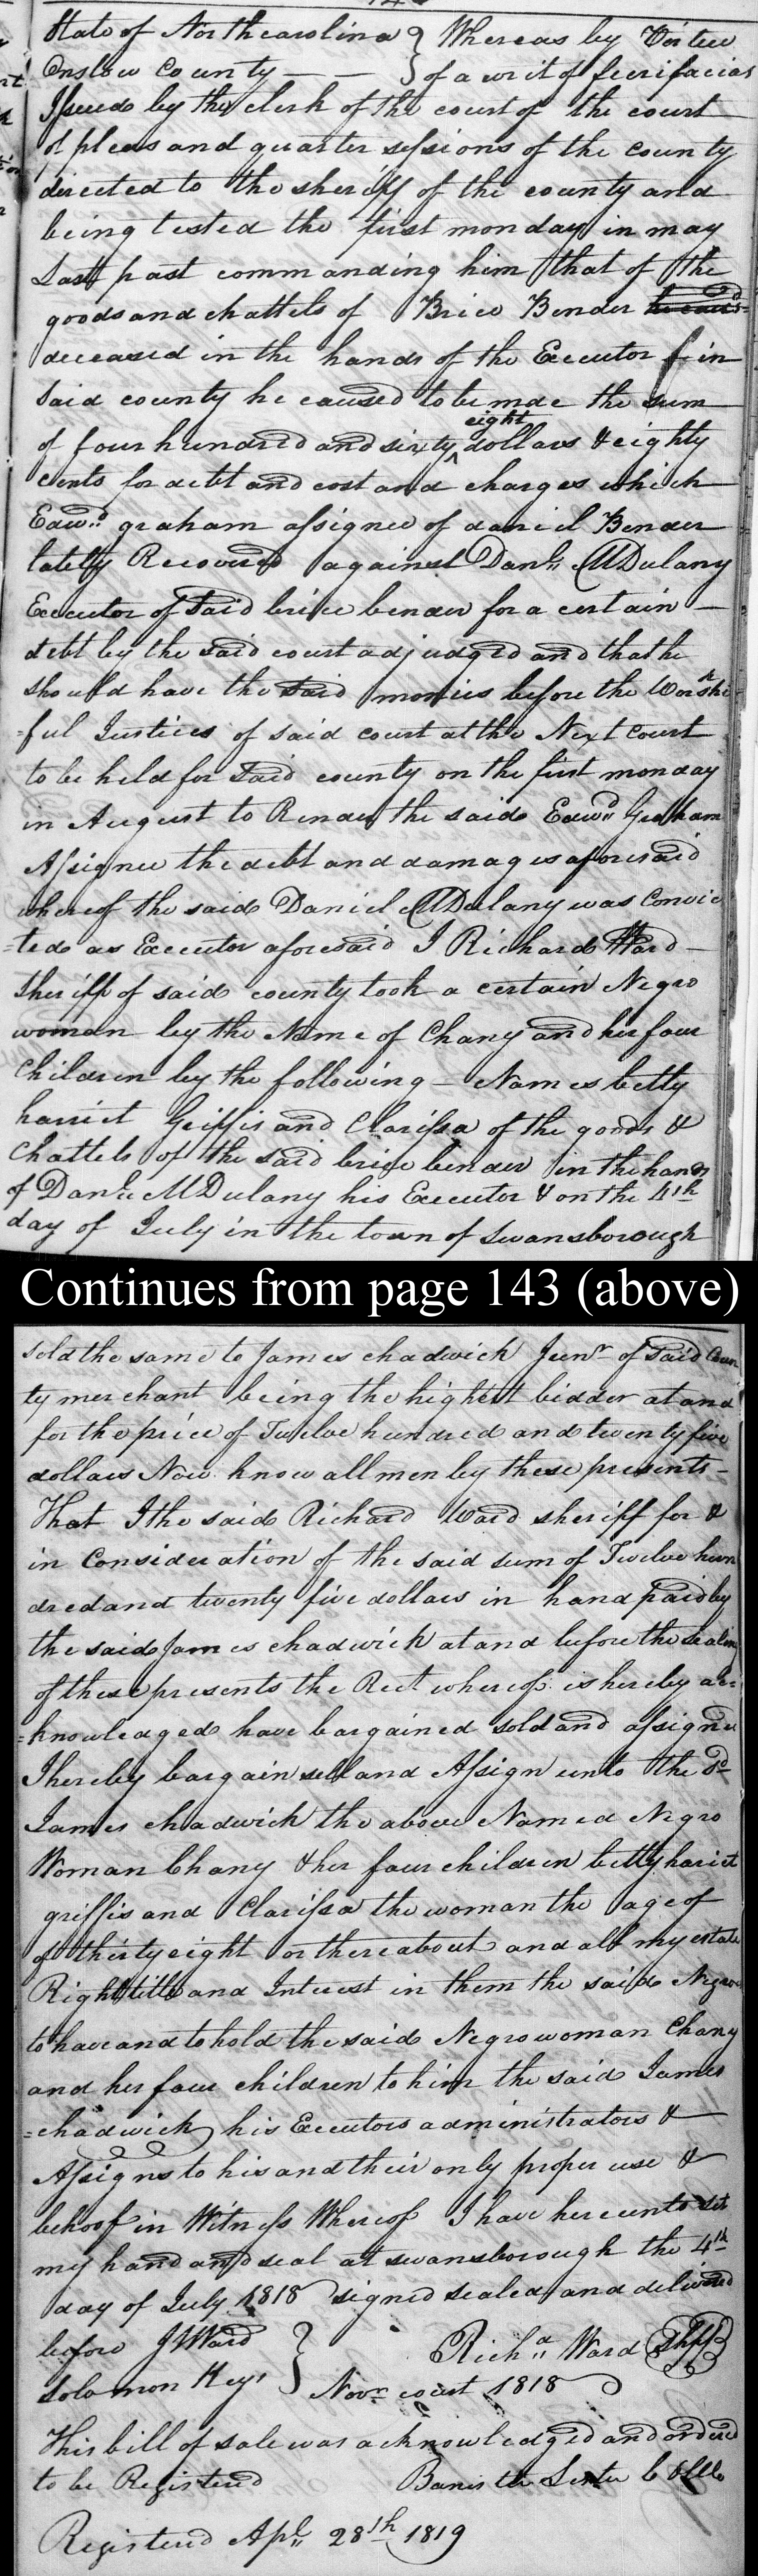 State of Northcarolina } Whereas by Virtue
Onslow County — — } of a writ of fierifacias
Issued by the clerk of the court of the court
of pleas and quarter sessions of the county
directed to the sheriff of the county and
being tested the first monday in may
Last past commanding him that of the
goods and chattels of Brice Bender
deceased in the hands of the Executor in
said county he caused to be made the sum
of four hundred and sixty eight dollars & eighty
cents for debt and cost and charges which
Edwd. graham assignee of daniel Bender
lately Recovered against Danl. MDulany
Executor of said brice bender for a certain —
debt by the said court adjudged and that he
should have the said monies before the Worshi
=ful Justices of said court at the Next Court
to be held for said county on the first monday
in August to Render the said Edwd. Graham
Assignee the debt and damages aforesaid
whereof the said Daniel MDulany was Convic
=ted as Executor aforesaid I Richard Ward —
Sheriff of said county took a certain Negro
woman by the Name of Chany and her four
Children by the following — Names betty
harriet Griffis and Clarissa of the goods &
Chattels of the said brice bender in the hands
of Danl. MDulany his Executor & on the 4th
day of July in the town of Swansborough
Continues from page 143 (above)
sold the same to James chadwick Junr of said Coun
ty merchant being the highest bidder at and
for the price of Twelve hundred and twenty five
dollars Now know all men by these presents —
That I the said Richard Ward sheriff for &
in Consideration of the said sum of Twelve hun
dred and twenty five dollars in hand paid by
the said James chadwick at and before the sealing
of these presents the Rect whereof is hereby ac=
=knowledged have bargained sold and assigned
I hereby bargain sell and Assign unto the sd
James chadwick the above Named Negro
Woman Chany & her four children betty hariet
griffis and Clarissa the woman the age of
of thirty eight or thereabout and all my estate
Right title and Interest in them the said Negroes
to have and to hold the said Negro woman Chany
and her four children to him the said James
=chadwick his Executors administrators &
Assigns to his and their only proper use &
behoof in Witness Whereof I have hereunto set
my hand and seal at swansborough the 4th
day of July 1818 signed sealed and delivered
before J W Ward } Richd. Ward Shff
Solomon Keys } Novr court 1818
This bill of sale was acknowledged and ordered
to be Registered Banister Lester C
Registered Apl. 28th 1819